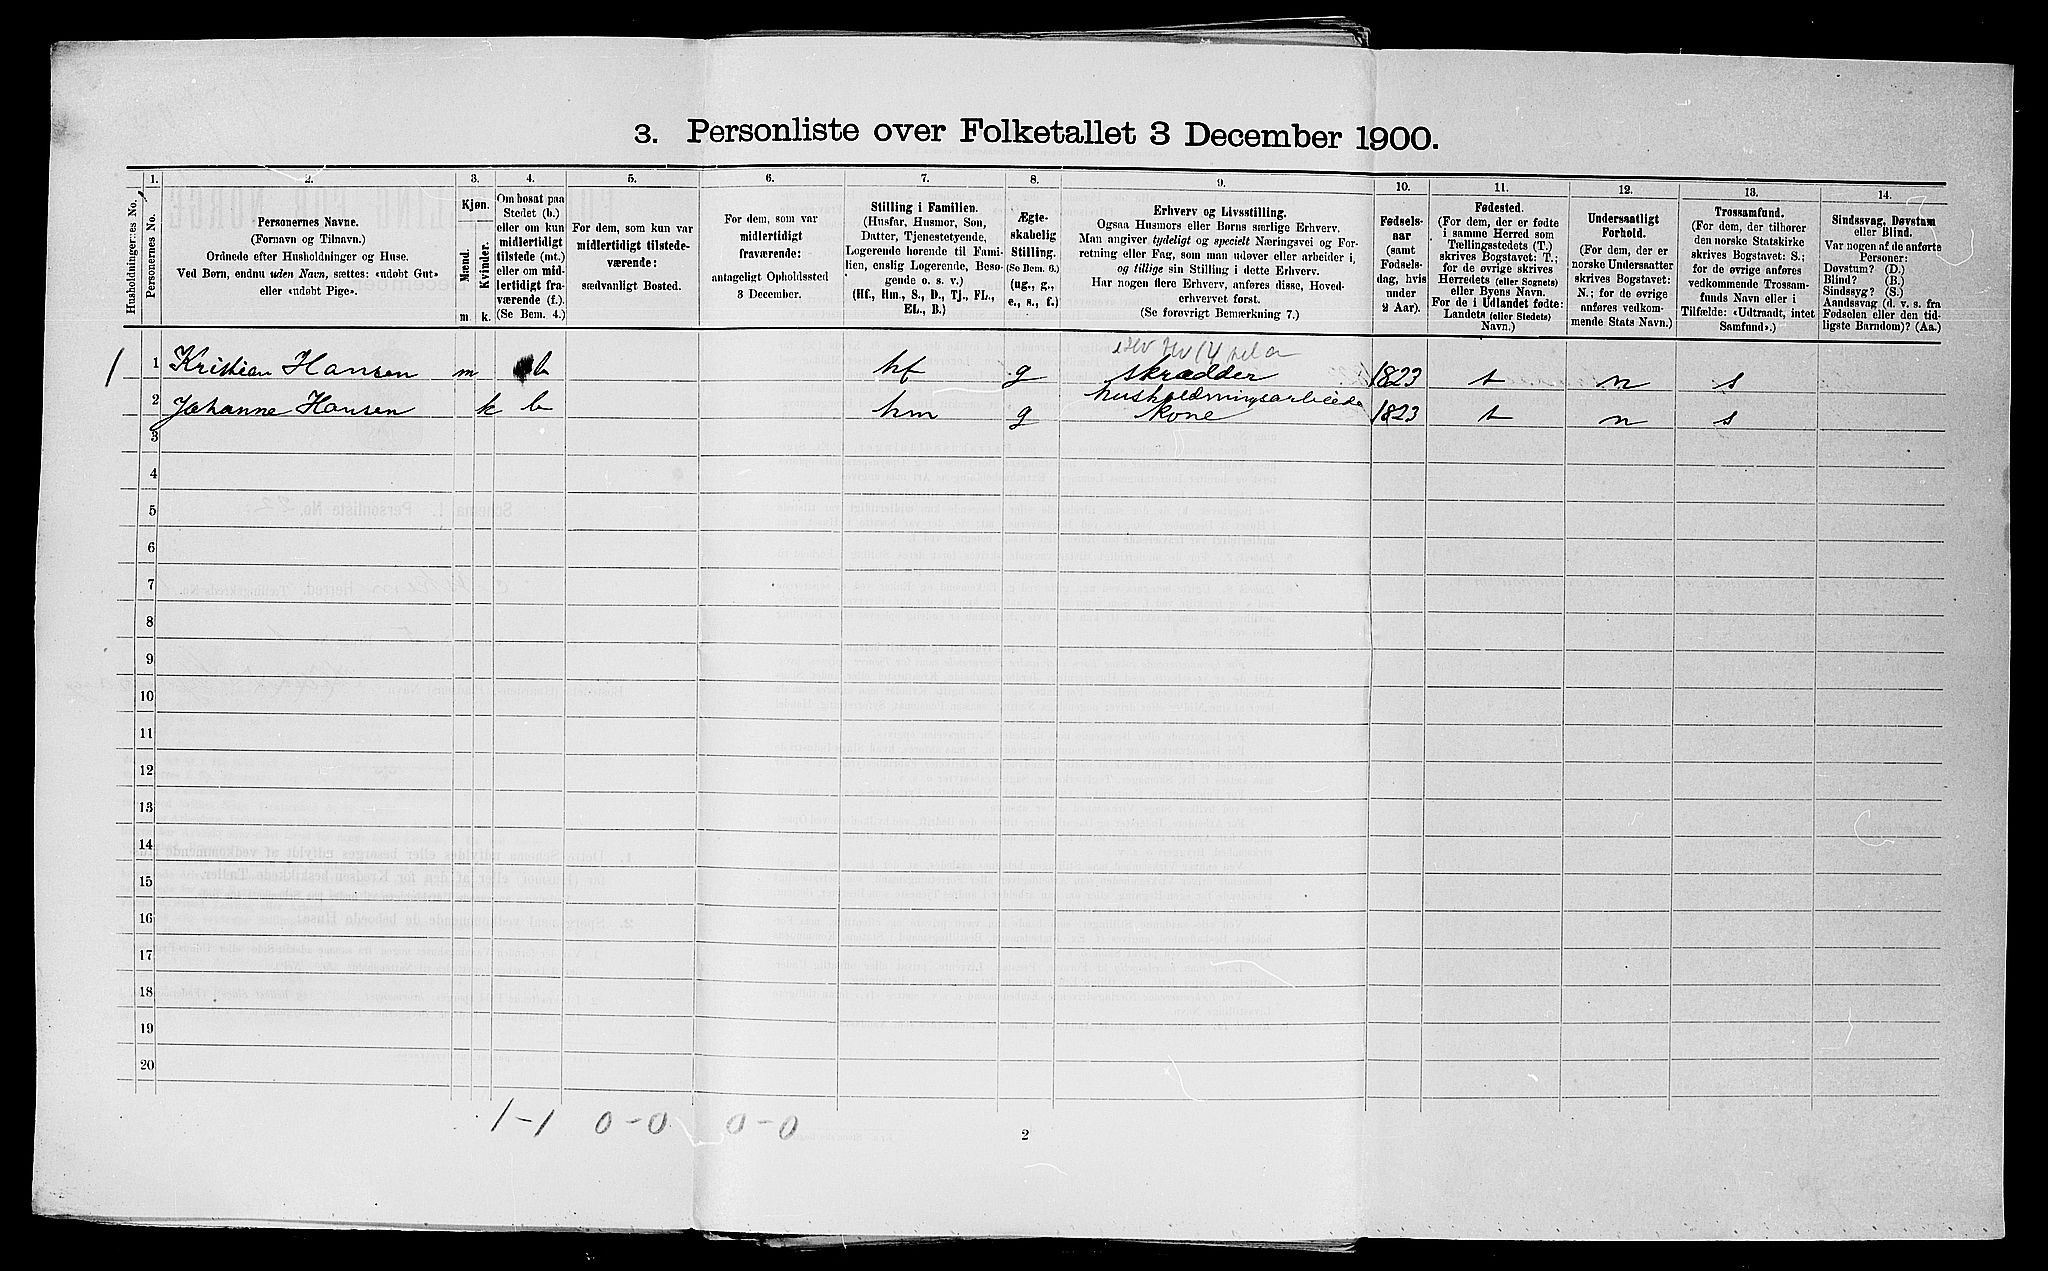 3. Personliste over Folketallet 3 December 1900.
Husholdningernes No.
1.
Personernes No.
2.
Personernes Navne.
(Fornavn og Tilnavn.)
Ordnede efter Husholdninger og Huse.
Ved Børn, endnu uden Navn, sættes: «udøbt Gut»
eller «udøbt Pige».
3.
Kjøn.
Mænd.
Kvinder.
m.
k.
4.
Om bosat paa
Stedet (b.)
eller om kun
midlertidigt
tilstede (mt.)
eller om mid-
lertidigt fra-
værende (f.).
(Se Bem. 4.)
5.
For dem, som kun var
midlertidigt tilstede-
værende:
sædvanligt Bosted.
6.
For dem, som var
midlertidigt
fraværende:
antageligt Opholdssted
3 December.
7.
Stilling i Familien.
(Husfar, Husmor, Søn,
Datter, Tjenestetyende,
Logerende hørende til Fami-
lien, enslig Logerende, Besø-
gende o. s. v.)
(Hf., Hm., S., D., Tj., FL.,
EL., B.)
8.
Ægte-
skabelig
Stilling.
(Se Bem. 6.)
(ug., g.,
e., s., f.)
9.
Erhverv og Livsstilling.
Ogsaa Husmors eller Børns særlige Erhverv.
Man angiver tydeligt og specielt Næringsvei og For-
retning eller Fag, som man udøver eller arbeider i,
og tillige sin Stilling i dette Erhverv.
Har nogen flere Erhverv, anføres disse, Hoved-
erhvervet først.
(Se forøvrigt Bemærkning 7.)
10.
Fødsels-
aar
(samt
Fødsels-
dag, hvis
under
2 Aar).
11.
Fødested.
(For dem, der er fødte
i samme Herred som
Tællingsstedets (T.)
skrives Bogstavet: T.;
for de øvrige skrives
Herredets (eller Sognets)
eller Byens Navn.
For de i Udlandet fødte:
Landets (eller Stedets)
Navn.)
12.
Undersaatligt
Forhold.
(For dem, der er
norske Undersaatter
skrives Bogstavet:
N.; for de øvrige
anføres vedkom-
mende Stats Navn.)
13.
Trossamfund.
(For dem, der tilhører
den norske Statskirke
skrives Bogstavet: S.;
for de øvrige anføres
vedkommende Trossam-
funds Navn eller i
Tilfælde: «Udtraadt, intet
Samfund».)
14.
Sindssvag, Døvstum
eller Blind.
Var nogen af de anførte
Personer:
Døvstum? (D.)
Blind? (B.)
Sindssyg? (S.)
Aandssvag (d. v. s. fra
Fødselen eller den tid-
ligste Barndom)? (Aa.)
1 1 Kristian Hansen m b hf g skrædder 1823 t n s
2 Johanne Hansen k b hm g husholdningsarbeide kone 1823 t n s
3
4
5
6
7
8
9
10
11
12
13
14
15
16
17
18
19
20
1-1 0-0 0-0
2